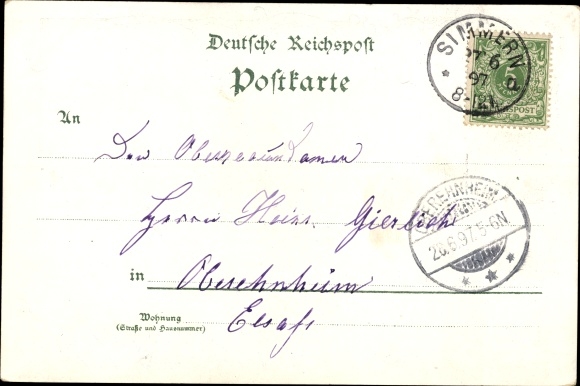 Deutsche Reichspost
Postkarte
SIMMERN
27 6
97
8-12V
REICHSPOST
An
Den
Herrn Heinr. Gierlich
OBEREHNHEIM
26.6.97. 5-6N.
in Oberehnheim
Wohnung
(Straße und Hausnummer)
Elsaß